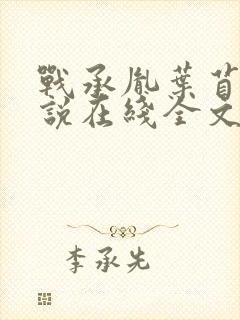 戰承胤葉苜
說在綫全文
李承先